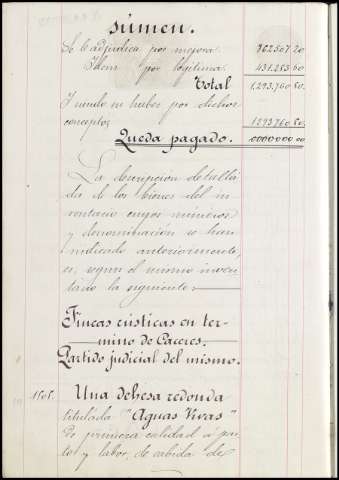 súmen.
Se le adjudica por mejora. 862.507 20
Idem por legítima. 431.253 60
Total 1.293,760 80.
Y siendo su haber por dichos
conceptos 1293760 80.
Queda pagado. 0000000 00
La descripción detalla
da de los bienes del in
ventario cuyos números
y denominación se han
indicado anteriormente,
es, según el mismo inven
tario la siguiente:
Fincas rústicas en tér-
mino de Cáceres.
Partido judicial del mismo.
Una dehesa redonda
titulada "Aguas Vivas"
de primera calidad á pas
to y labor, de cabida de